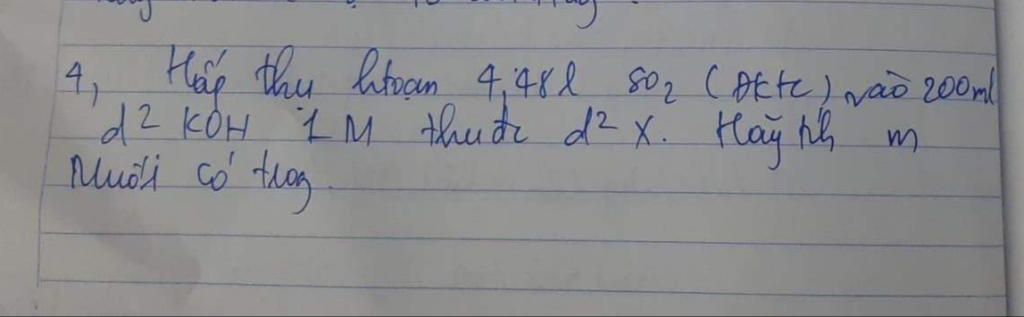 4, Hấp thu htoạn 4,48l SO2 (Đktc) vào 200ml
d2 KOH 1M thuđc d2 X. Hãy th m
Muối có trog